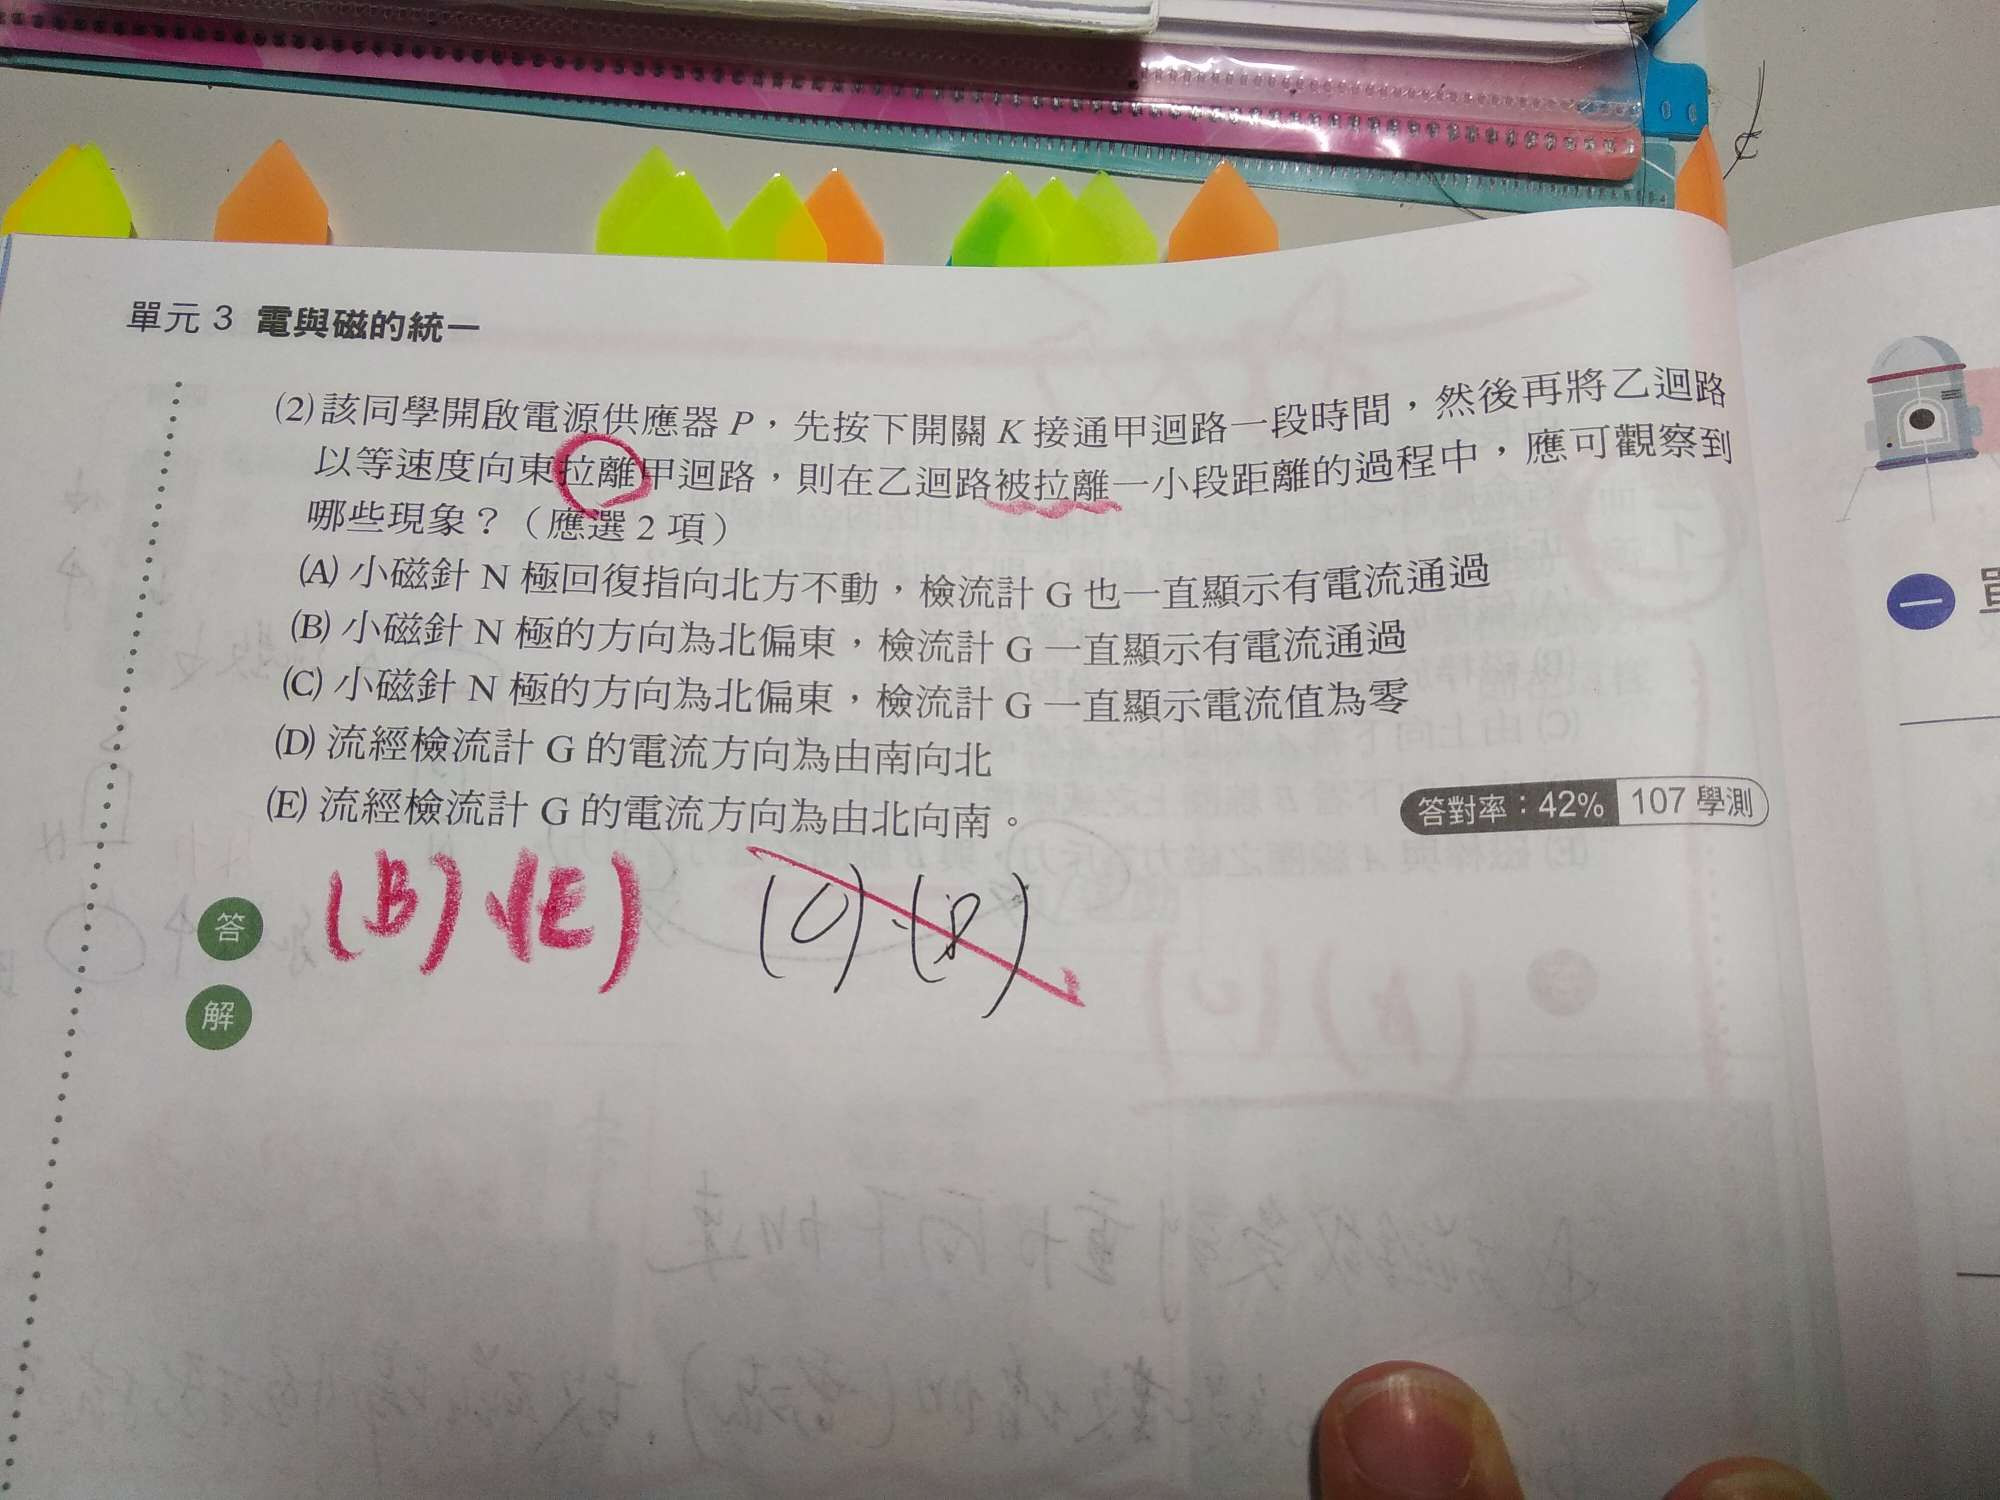 單元 3 電與磁的統一
(2)該同學開啟電源供應器 P，先按下開關 K 接通甲迴路一段時間，然後再將乙迴路
以等速度向東拉離甲迴路，則在乙迴路被拉離一小段距離的過程中，應可觀察到
哪些現象？（應選 2 項）
(A) 小磁針 N 極回復指向北方不動，檢流計 G 也一直顯示有電流通過
(B) 小磁針 N 極的方向為北偏東，檢流計 G 一直顯示有電流通過
(C) 小磁針 N 極的方向為北偏東，檢流計 G 一直顯示電流值為零
(D) 流經檢流計 G 的電流方向為由南向北
(E) 流經檢流計 G 的電流方向為由北向南。
答對率：42% 107 學測
答 (B)、(E) (C)、(D)
解
一